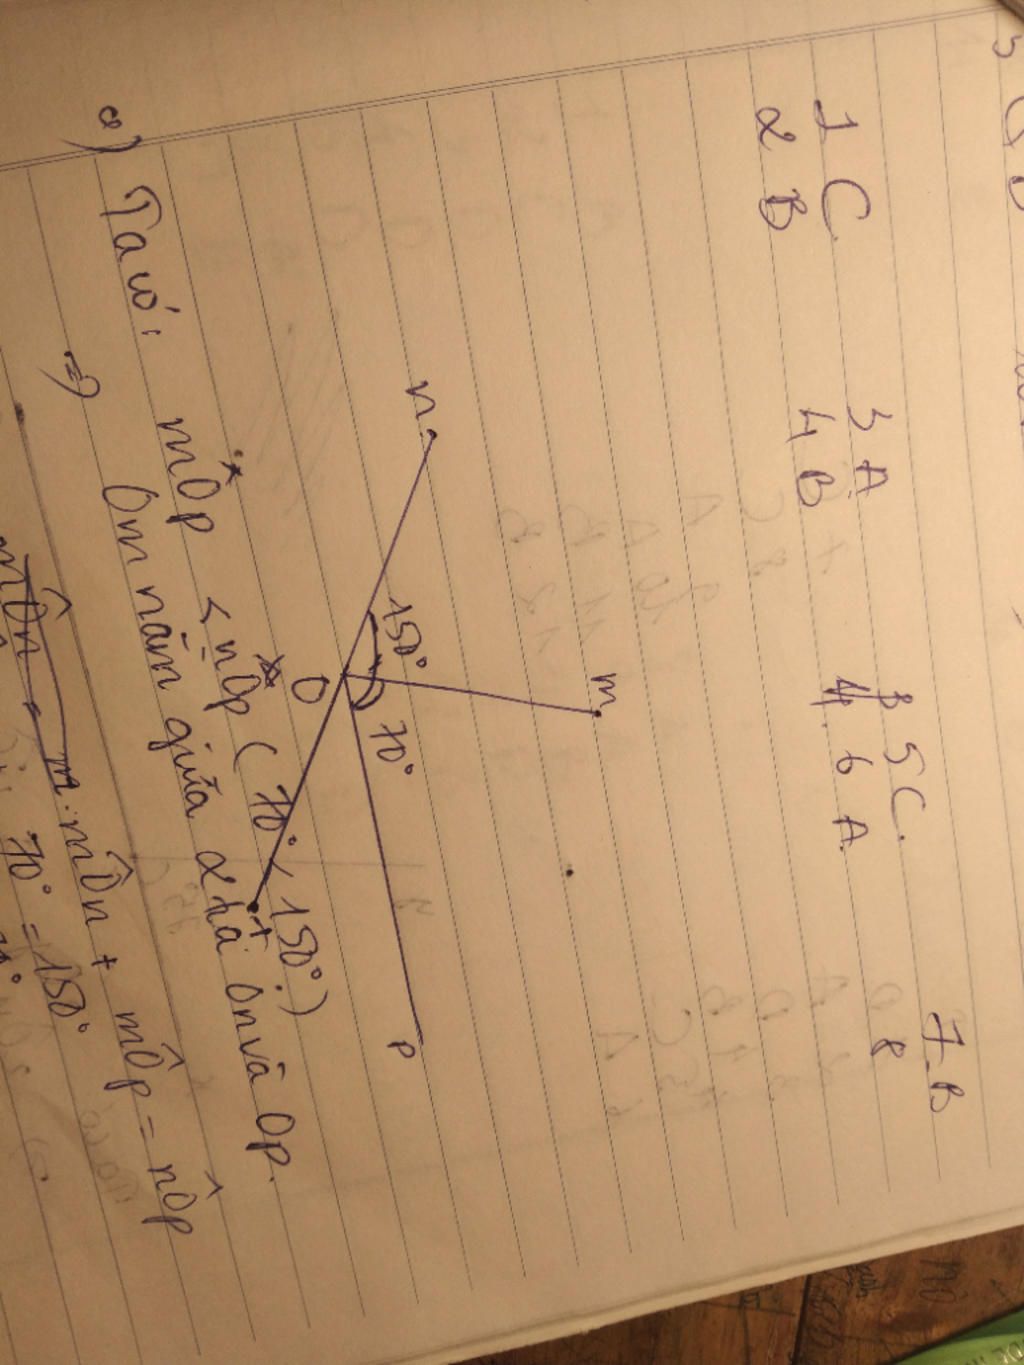 1 C. 3 A. 5 C. 7. B
2 B 4 B 4. 6 A. 8
m
n. 150° 70°
O p
t
a) Ta có: mOp < nOp (70° < 150°)
=) Om nằm giữa 2 tia On và Op.
mOn + mOp = nOp
70° = 150°